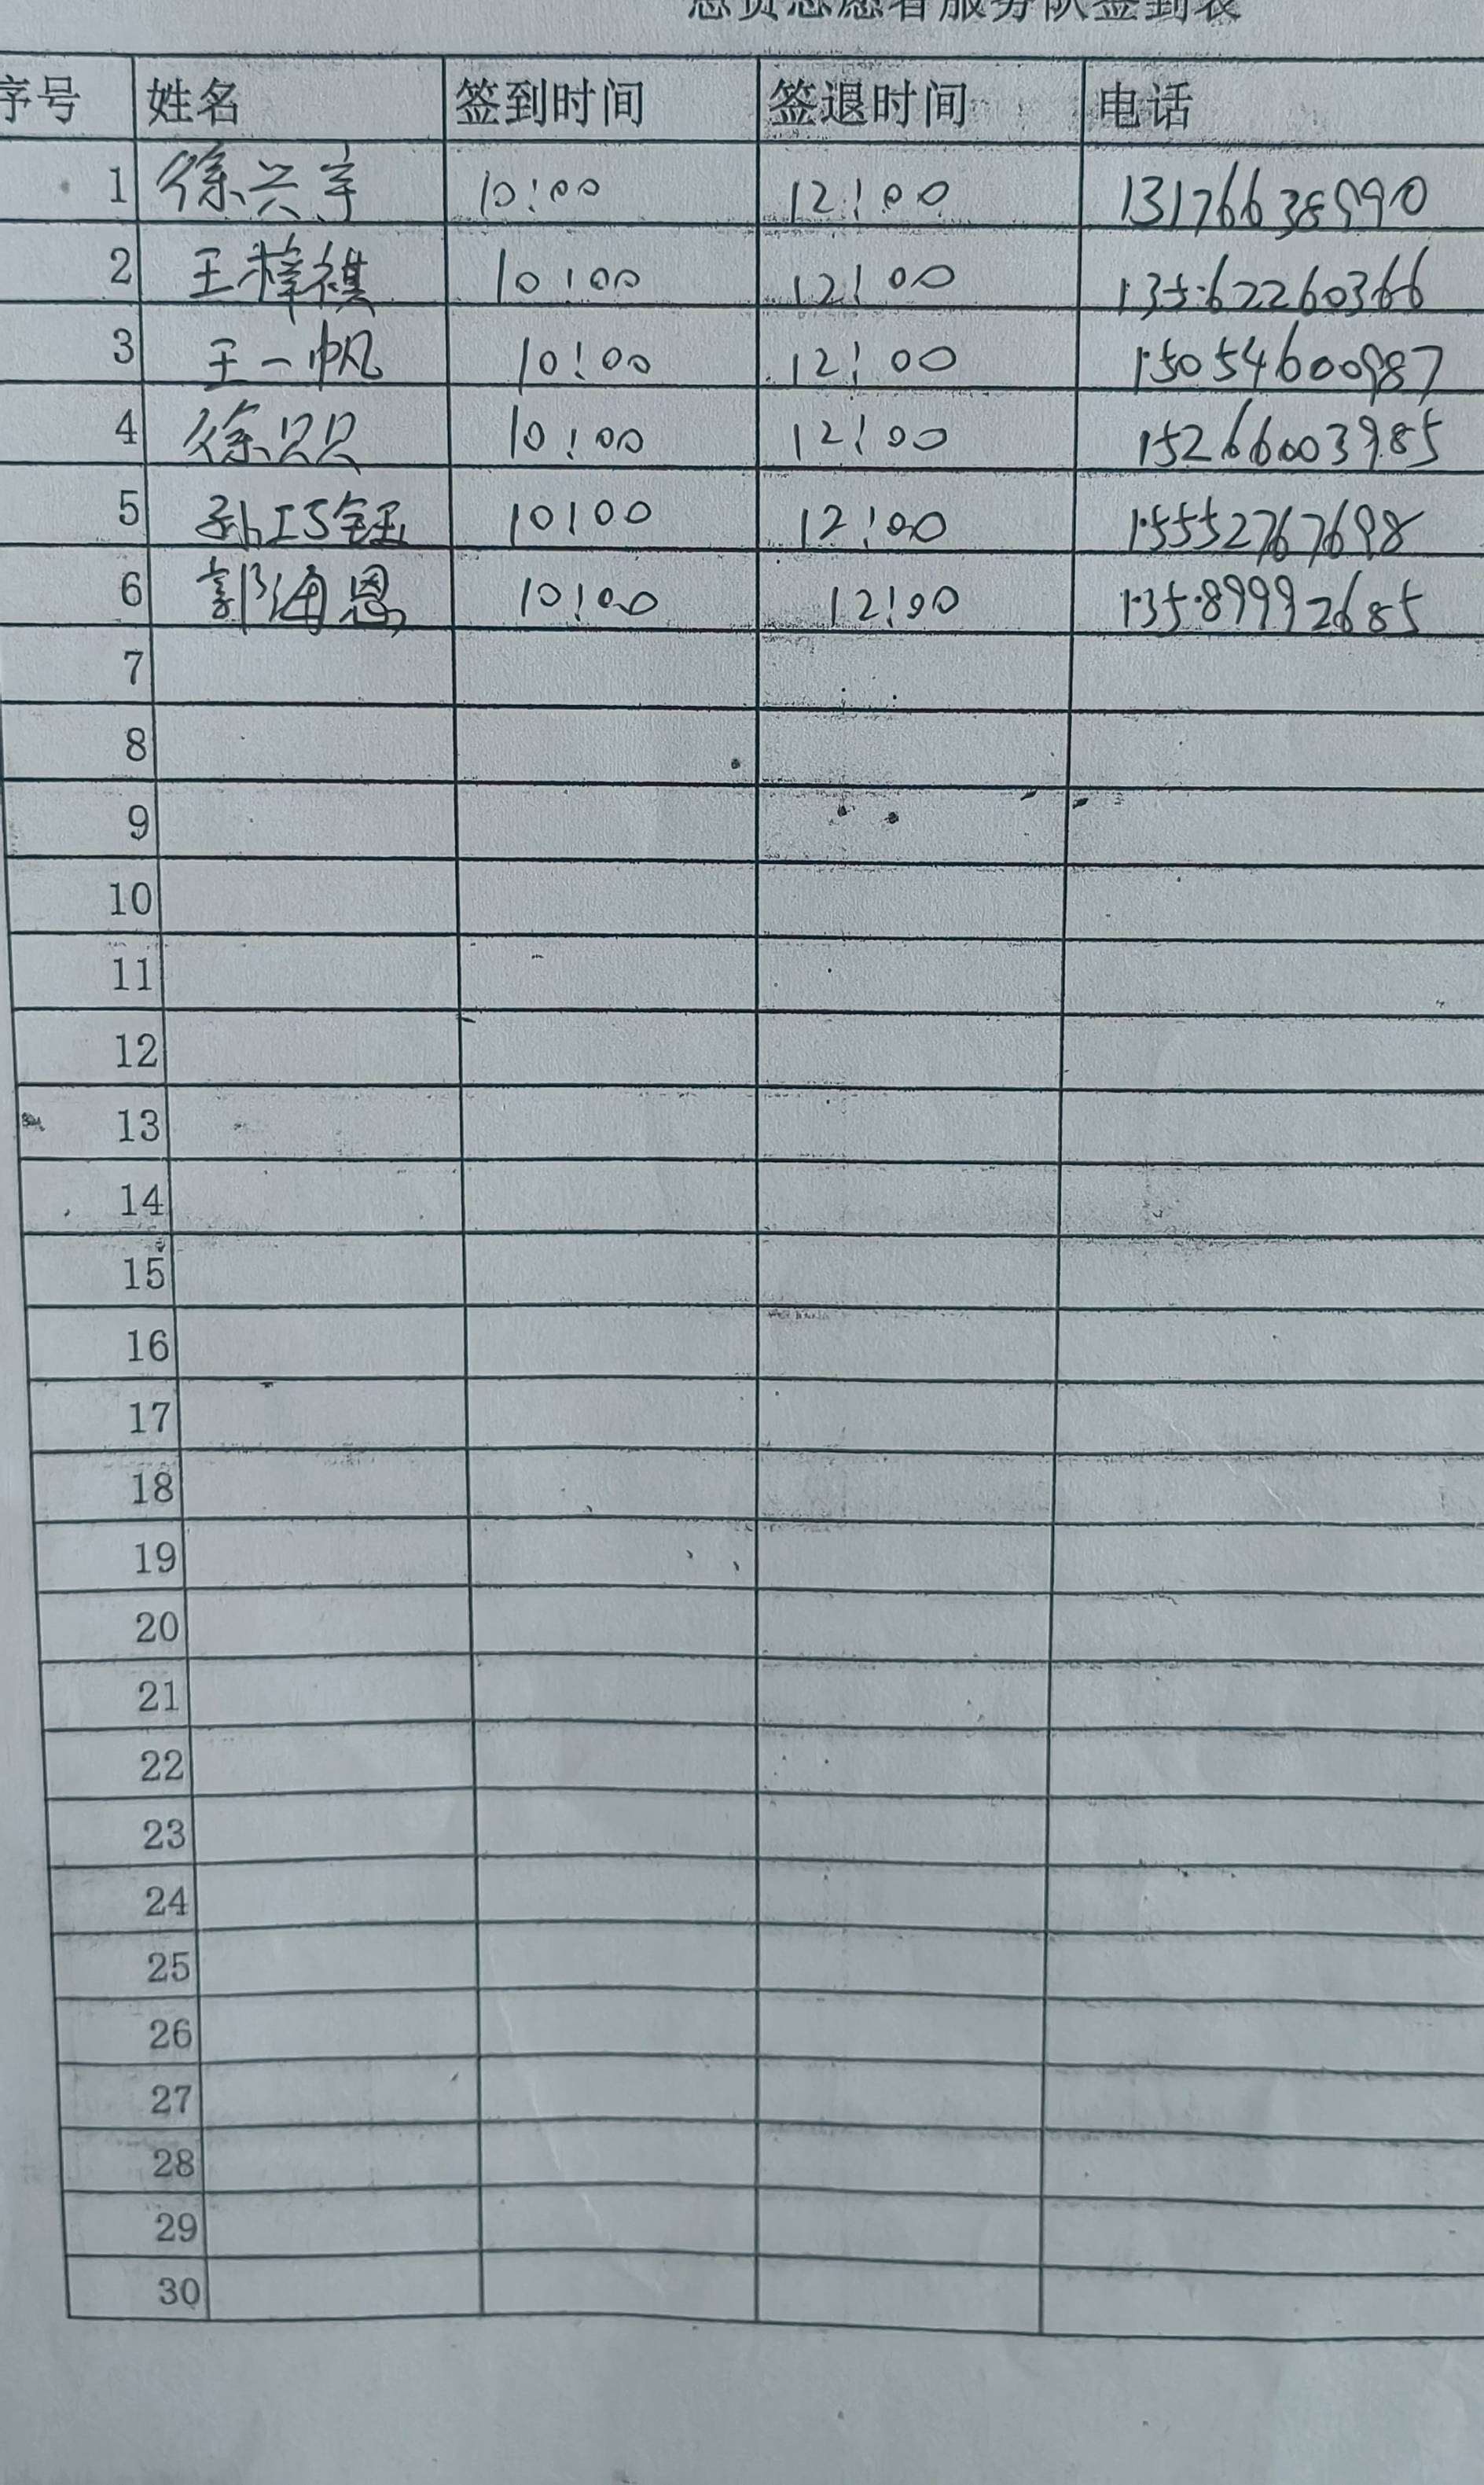 志愿者服务队签到表
序号 姓名 签到时间 签退时间 电话
1 徐兴宇 10:00 12:00 13176638990
2 王梓祺 10:00 12:00 13562260366
3 王一帆 10:00 12:00 15054600987
4 徐只只 10:00 12:00 15266003985
5 孙巧钰 10:00 12:00 15552767698
6 郭海恩 10:00 12:00 13589992685
7
8
9
10
11
12
13
14
15
16
17
18
19
20
21
22
23
24
25
26
27
28
29
30